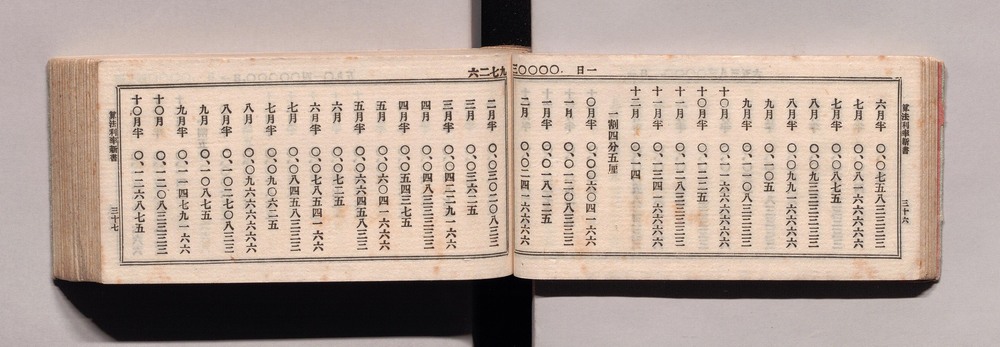 一日 .〇〇〇〇三九七二六
算法利率新書 三十六
六月半 〇、〇七五八三三三三
七月 〇、〇八一六六六六六
七月半 〇、〇八七五
八月 〇、〇九三三三三三三
八月半 〇、〇九九一六六六六
九月 〇、一〇五
九月半 〇、一一〇八三三三三
十〇月 〇、一一六六六六六六
十〇月半 〇、一二二五
十一月 〇、一二八三三三三三
十一月半 〇、一三四一六六六六
十二月 〇、一四
一割四分五厘
〇月半 〇、〇〇六〇四一六六
一月 〇、〇一二〇八三三三
一月半 〇、〇一八一二五
二月 〇、〇二四一六六六六
二月半 〇、〇三〇二〇八三三
三月 〇、〇三六二五
三月半 〇、〇四二二九一六六
四月 〇、〇四八三三三三三
四月半 〇、〇五四三七五
五月 〇、〇六〇四一六六六
五月半 〇、〇六六四五八三三
六月 〇、〇七二五
六月半 〇、〇七八五四一六六
七月 〇、〇八四五八三三三
七月半 〇、〇九〇六二五
八月 〇、〇九六六六六六六
八月半 〇、一〇二七〇八三三
九月 〇、一〇八七五
九月半 〇、一一四七九一六六
十〇月 〇、一二〇八三三三三
十〇月半 〇、一二六八七五
算法利率新書 三十七